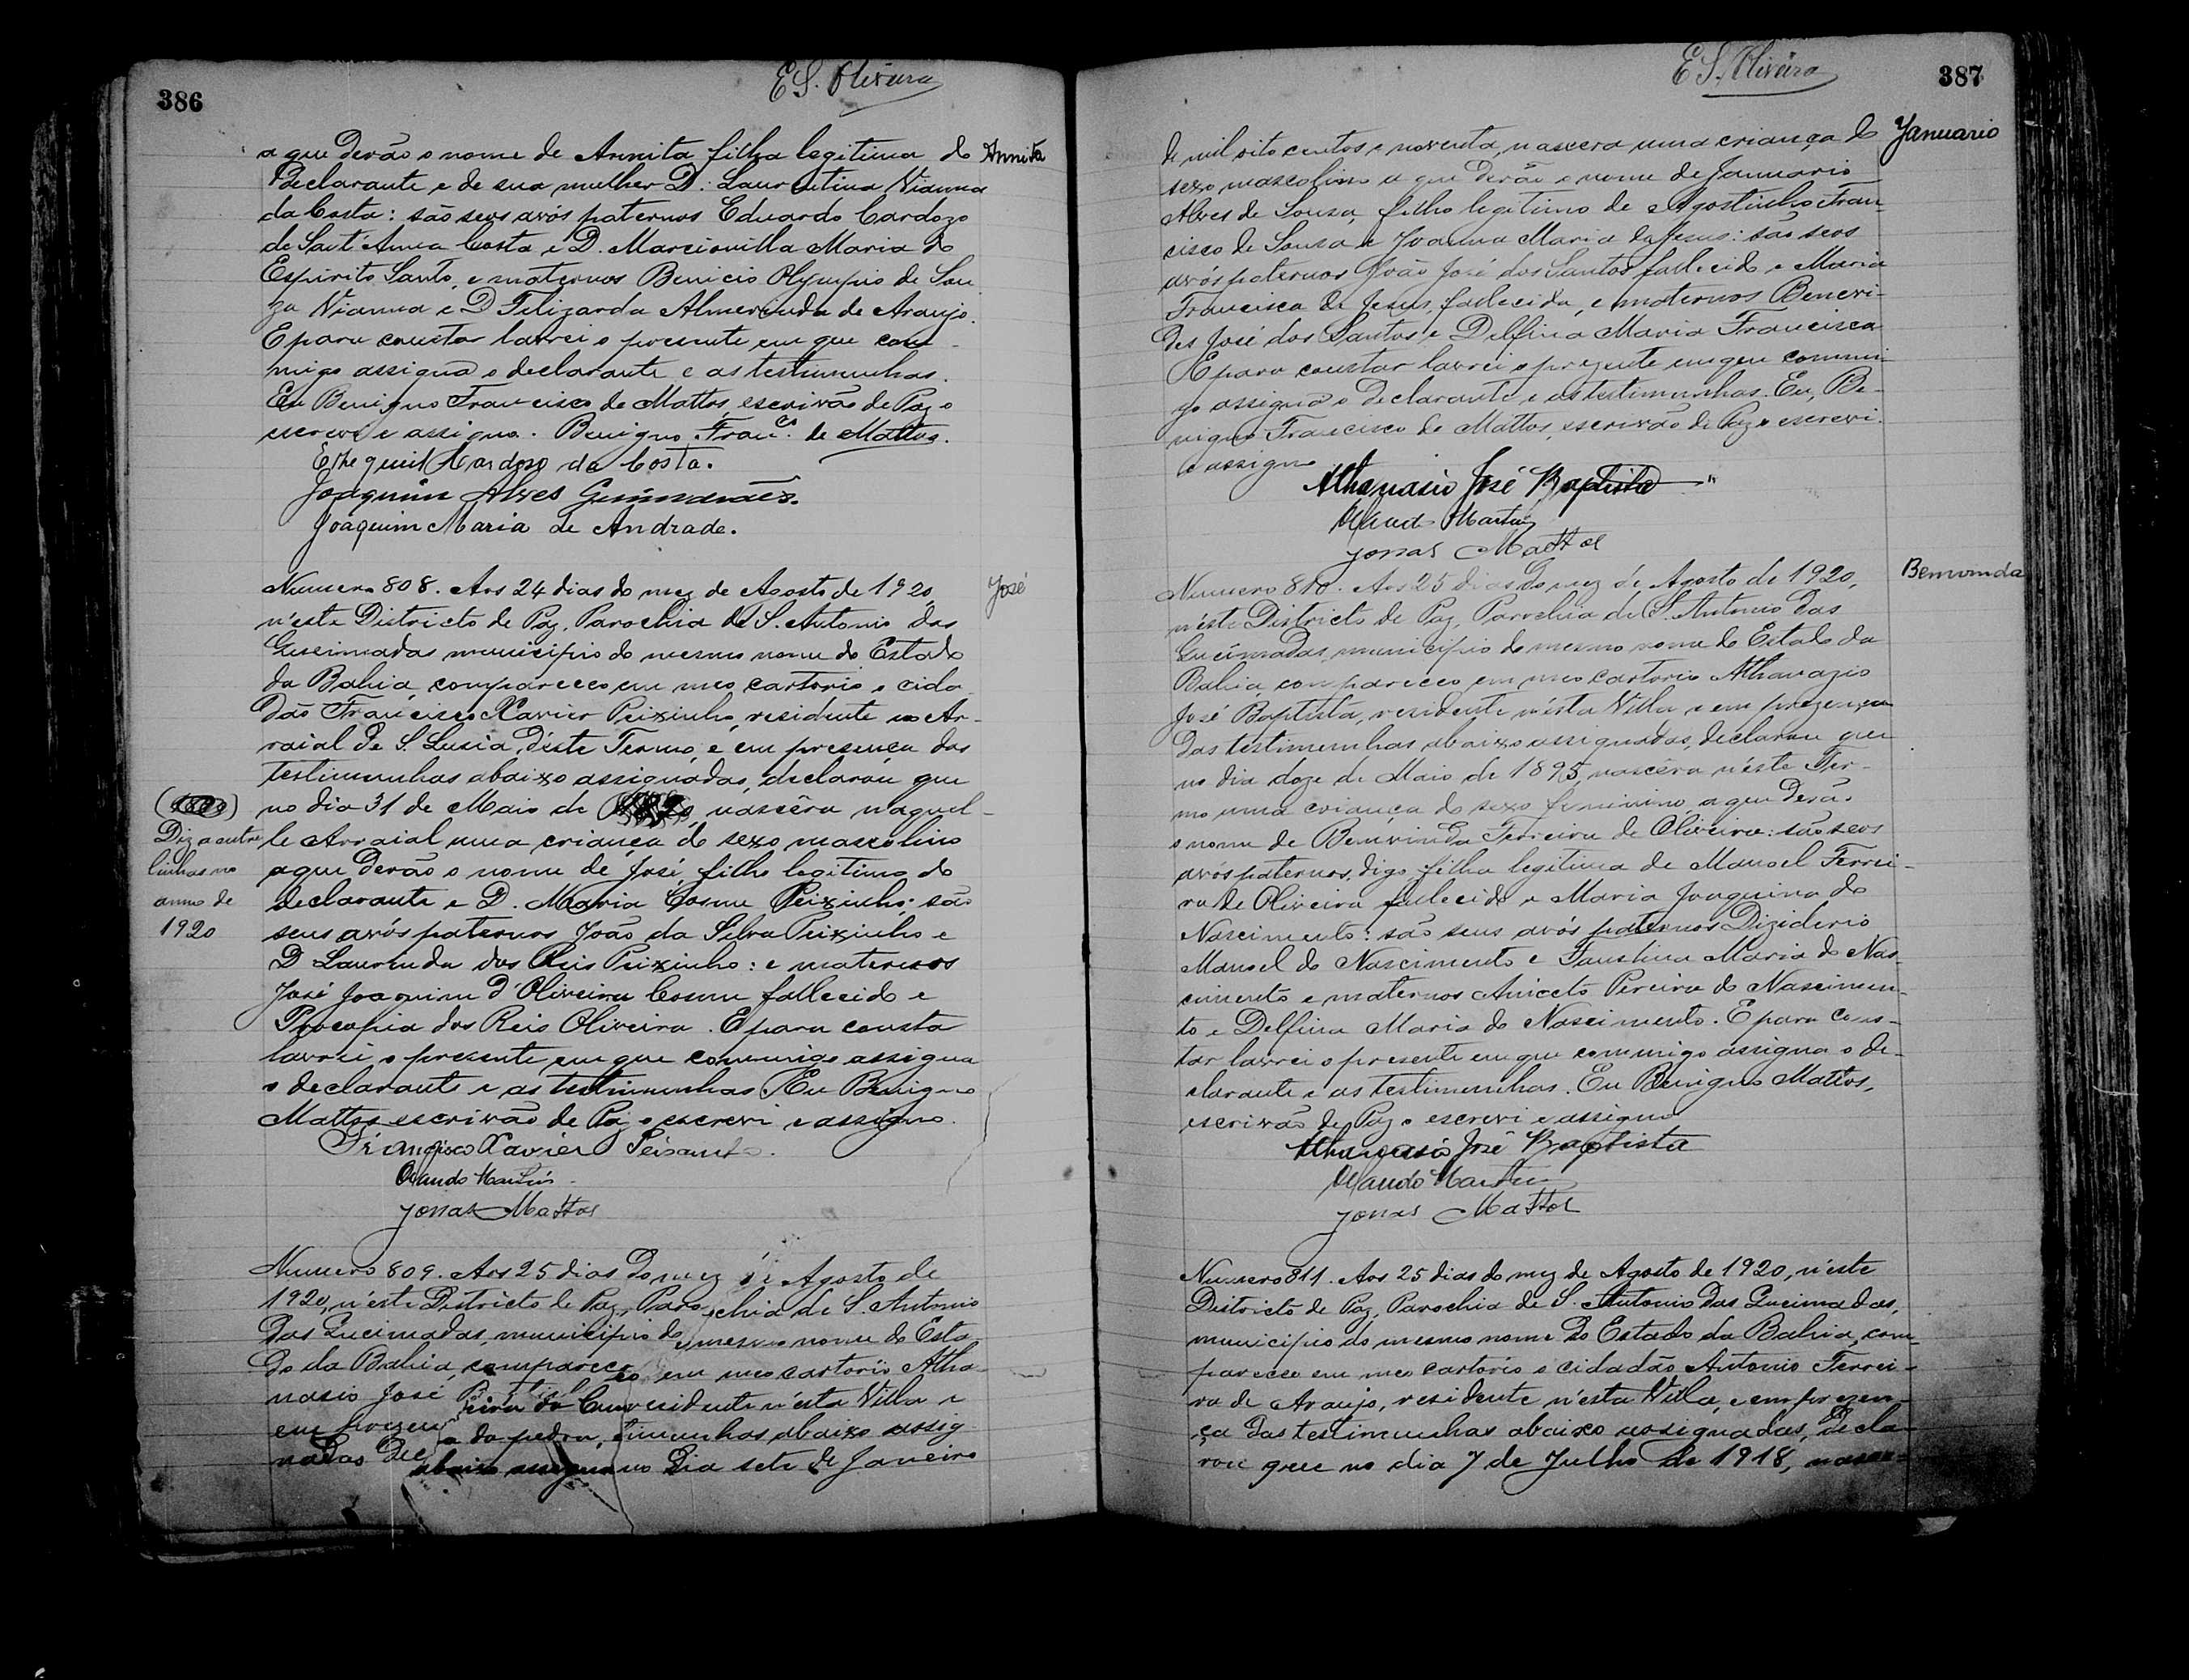 386
E S. Oliveira
a que derão o nome de Annita filha legitima do
Annita
declarante e de sua mulher D. Laurentina Vianna
da Costa: são seos avós paternos Eduardo Cardozo
de Sant'Anna Costa e D. Marcionilla Maria do
Espirito Santo, e maternos Benicio Olympio de Sou
za Vianna e D Filizarda Almerinda de Araujo.
E para constar lavrei o presente em que com-
migo assigna o declarante e as testimunhas.
Eu Benigno Francisco de Mattos, escrivão de Paz o
escrevi e assigno. Benigno Franco. de Mattos.
Cardozo da Costa.
Joaquim Alves Guimarães.
Joaquim Maria de Andrade.
Numero 808. Aos 24 dias do mez de Agosto de 1920,
José
n'este Districto de Paz, Parochia de S. Antonio das
Queimadas municipio do mesmo nome do Estado
da Bahia, compareceo em meo cartorio o cida
dão Francisco Xavier Peixinho, residente no Ar-
raial de S. Lusia, d'este Termo, e em presença das
testimunhas abaixo assignadas, declarou que
no dia 31 de Maio de nascêra naquel-
le Arraial uma criança do sexo masculino
a que derão o nome de José, filho legitimo do
declarante e D. Maria Cosme Peixinho; são
seus avós paternos João da Silva Peixinho e
D Laurinda dos Reis Peixinho: e maternos
José Joaquim d'Oliveira Cosme fallecido e
Procopia dos Reis Oliveira. E para consta
lavrei o presente, em que commigo assigna
o declarante e as testimunhas. Eu Benigno
Mattos escrivão de Paz o escrevi e assigno.
Diz a entre
linhas no
anno de
1920
Francisco Xavier
Olando Martins
Jonas Mattos
Numero 809. Aos 25 dias do mez de Agosto de
1920, n'este Districto de Paz, Parochia de S. Antonio
das Queimadas, municipio do mesmo nome do Esta
do da Bahia, compareceo em meo cartorio Atha
nasio José residente n'esta Villa e
em abaixo assig
nadas no dia sete de Janeiro
E S. Oliveira
387
de mil oito centos e noventa, nascera uma criança do
Januario
sexo masculino a que derão o nome de Januario
Alves de Sousa, filho legitimo de Agostinho Fran-
cisco de Sousa e Joanna Maria de Jesus: são seos
avós paternos João José dos Santos fallecido e Maria
Francisca de Jesus, fallecida, e maternos Benevi-
des José dos Santos e Delfina Maria Francisca
E para constar lavrei o prezente em que commi
go assigna o declarante e as testimunhas. Eu, Be-
nigno Francisco de Mattos, escrivão de Paz o escrevi
e assigno
Athanasio José Baptista
Olando Martins
Jonas Mattos
Numero 810. Aos 25 dias do mez de Agosto de 1920,
Bemvinda
n'este Districto de Paz, Parochia de S. Antonio das
Queimadas, municipio do mesmo nome do Estado da
Bahia, compareceo em meo cartorio Athanazio
José Baptista, residente n'esta Villa e em prezença
das testimunhas abaixo assignadas, declarou que
no dia doze de Maio de 1895, nascêra n'este Ter-
mo uma criança do sexo feminino a que derão
o nome de Bemvinda Ferreira de Oliveira: são seos
avós paternos, digo, filha legitima de Manoel Ferrei-
ra de Oliveira fallecido e Maria Joaquina do
Nascimento: são seus avós paternos Diziderio
Manoel do Nascimento e Faustina Maria do Nas-
cimento e maternos Aniceto Pereira do Nascimen-
to e Delfina Maria do Nascimento. E para cons-
tar lavrei o presente em que commigo assigna o de-
clarante e as testimunhas. Eu Benigno Mattos,
escrivão de Paz o escrevi e assigno
Athanasio José Baptista
Olando Martins
Jonas Mattos
Numero 811. Aos 25 dias do mez de Agosto de 1920, n'este
Districto de Paz, Parochia de S. Antonio das Queimadas,
municipio do mesmo nome do Estado da Bahia, com
pareceo em meo cartorio o cidadão Antonio Ferrei-
ra de Araujo, residente n'esta Villa, e em prezen-
ça das testimunhas abaixo assignadas, decla-
rou que no dia 7 de Julho de 1918, nasce-